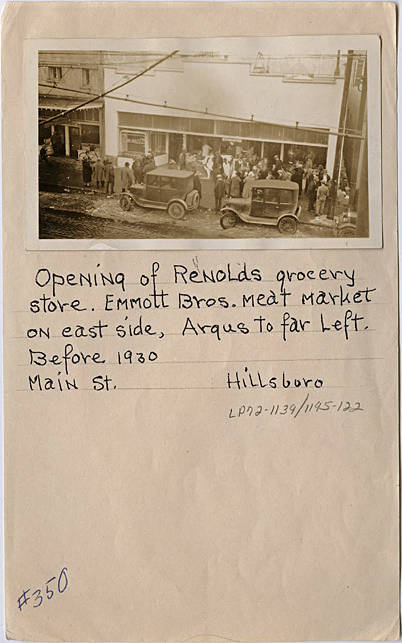 Opening of Renolds grocery
store. Emmott Bros. meat market
on east side, Argus to far left.
Before 1930
Main St. Hillsboro
LP72-1139/1195-122
#350